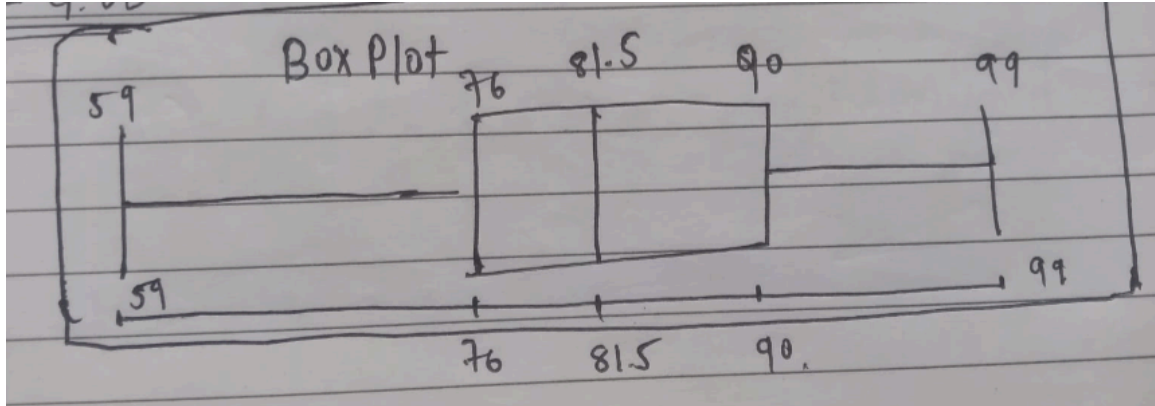 Box Plot
59 76 81.5 90 99
59 99
76 81.5 90.